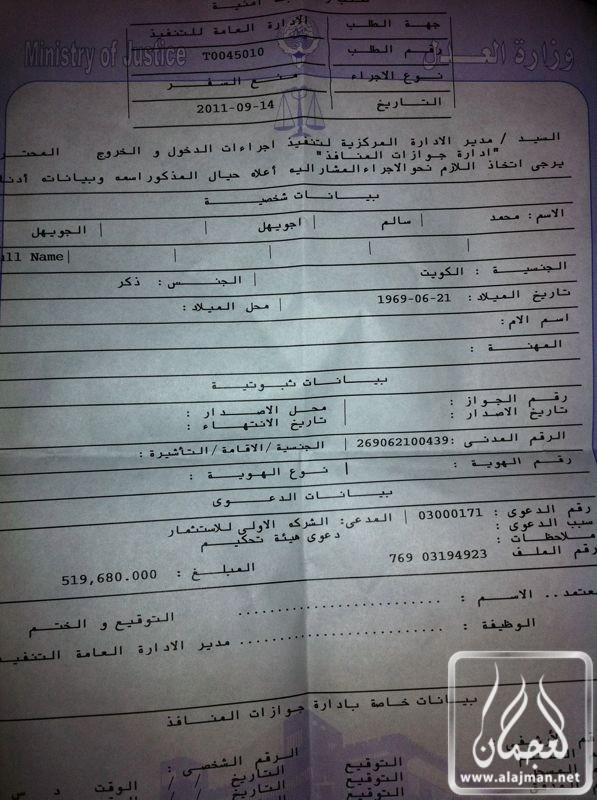 جهة الطلب | الادارة العامة للتنفيذ
رقم الطلب | T0045010
نوع الاجراء | منع السفر
التاريخ | 2011-09-14
وزارة العدل
Ministry of Justice
السيد / مدير الادارة المركزية لتنفيذ اجراءات الدخول و الخروج
"ادارة جوازات المنافذ"
يرجى اتخاذ اللازم نحو الاجراء المشار اليه أعلاه حيال المذكور اسمه وبياناته
بيانات شخصية
الاسم: محمد | سالم | اجويهل | الجويهل
Name
الجنسية : الكويت | الجنس : ذكر
تاريخ الميلاد : 21-06-1969 | محل الميلاد :
اسم الام:
المهنة :
بيانات ثبوتية
رقم الجواز : | محل الاصدار :
تاريخ الاصدار : | تاريخ الانتهاء :
الرقم المدنى :269062100439 | الجنسية/الاقامة/التأشيرة :
رقم الهوية : | نوع الهوية :
بيانات الدعوى
رقم الدعوى : 03000171 | المدعى: الشركه الاولى للاستثمار
سبب الدعوى : دعوى هيئة تحكيم
ملاحظات :
رقم الملف 03194923 769 المبلغ : 519,680.000
الاسم : .......................... التوقيع و الختم
الوظيفة: .......................... مدير الادارة العامة
بيانات خاصة بادارة جوازات المنافذ
التوقيع الرقم الشخصي :
التوقيع التاريخ / / الوقت د س
التوقيع التاريخ / /
العجمان
www.alajman.net